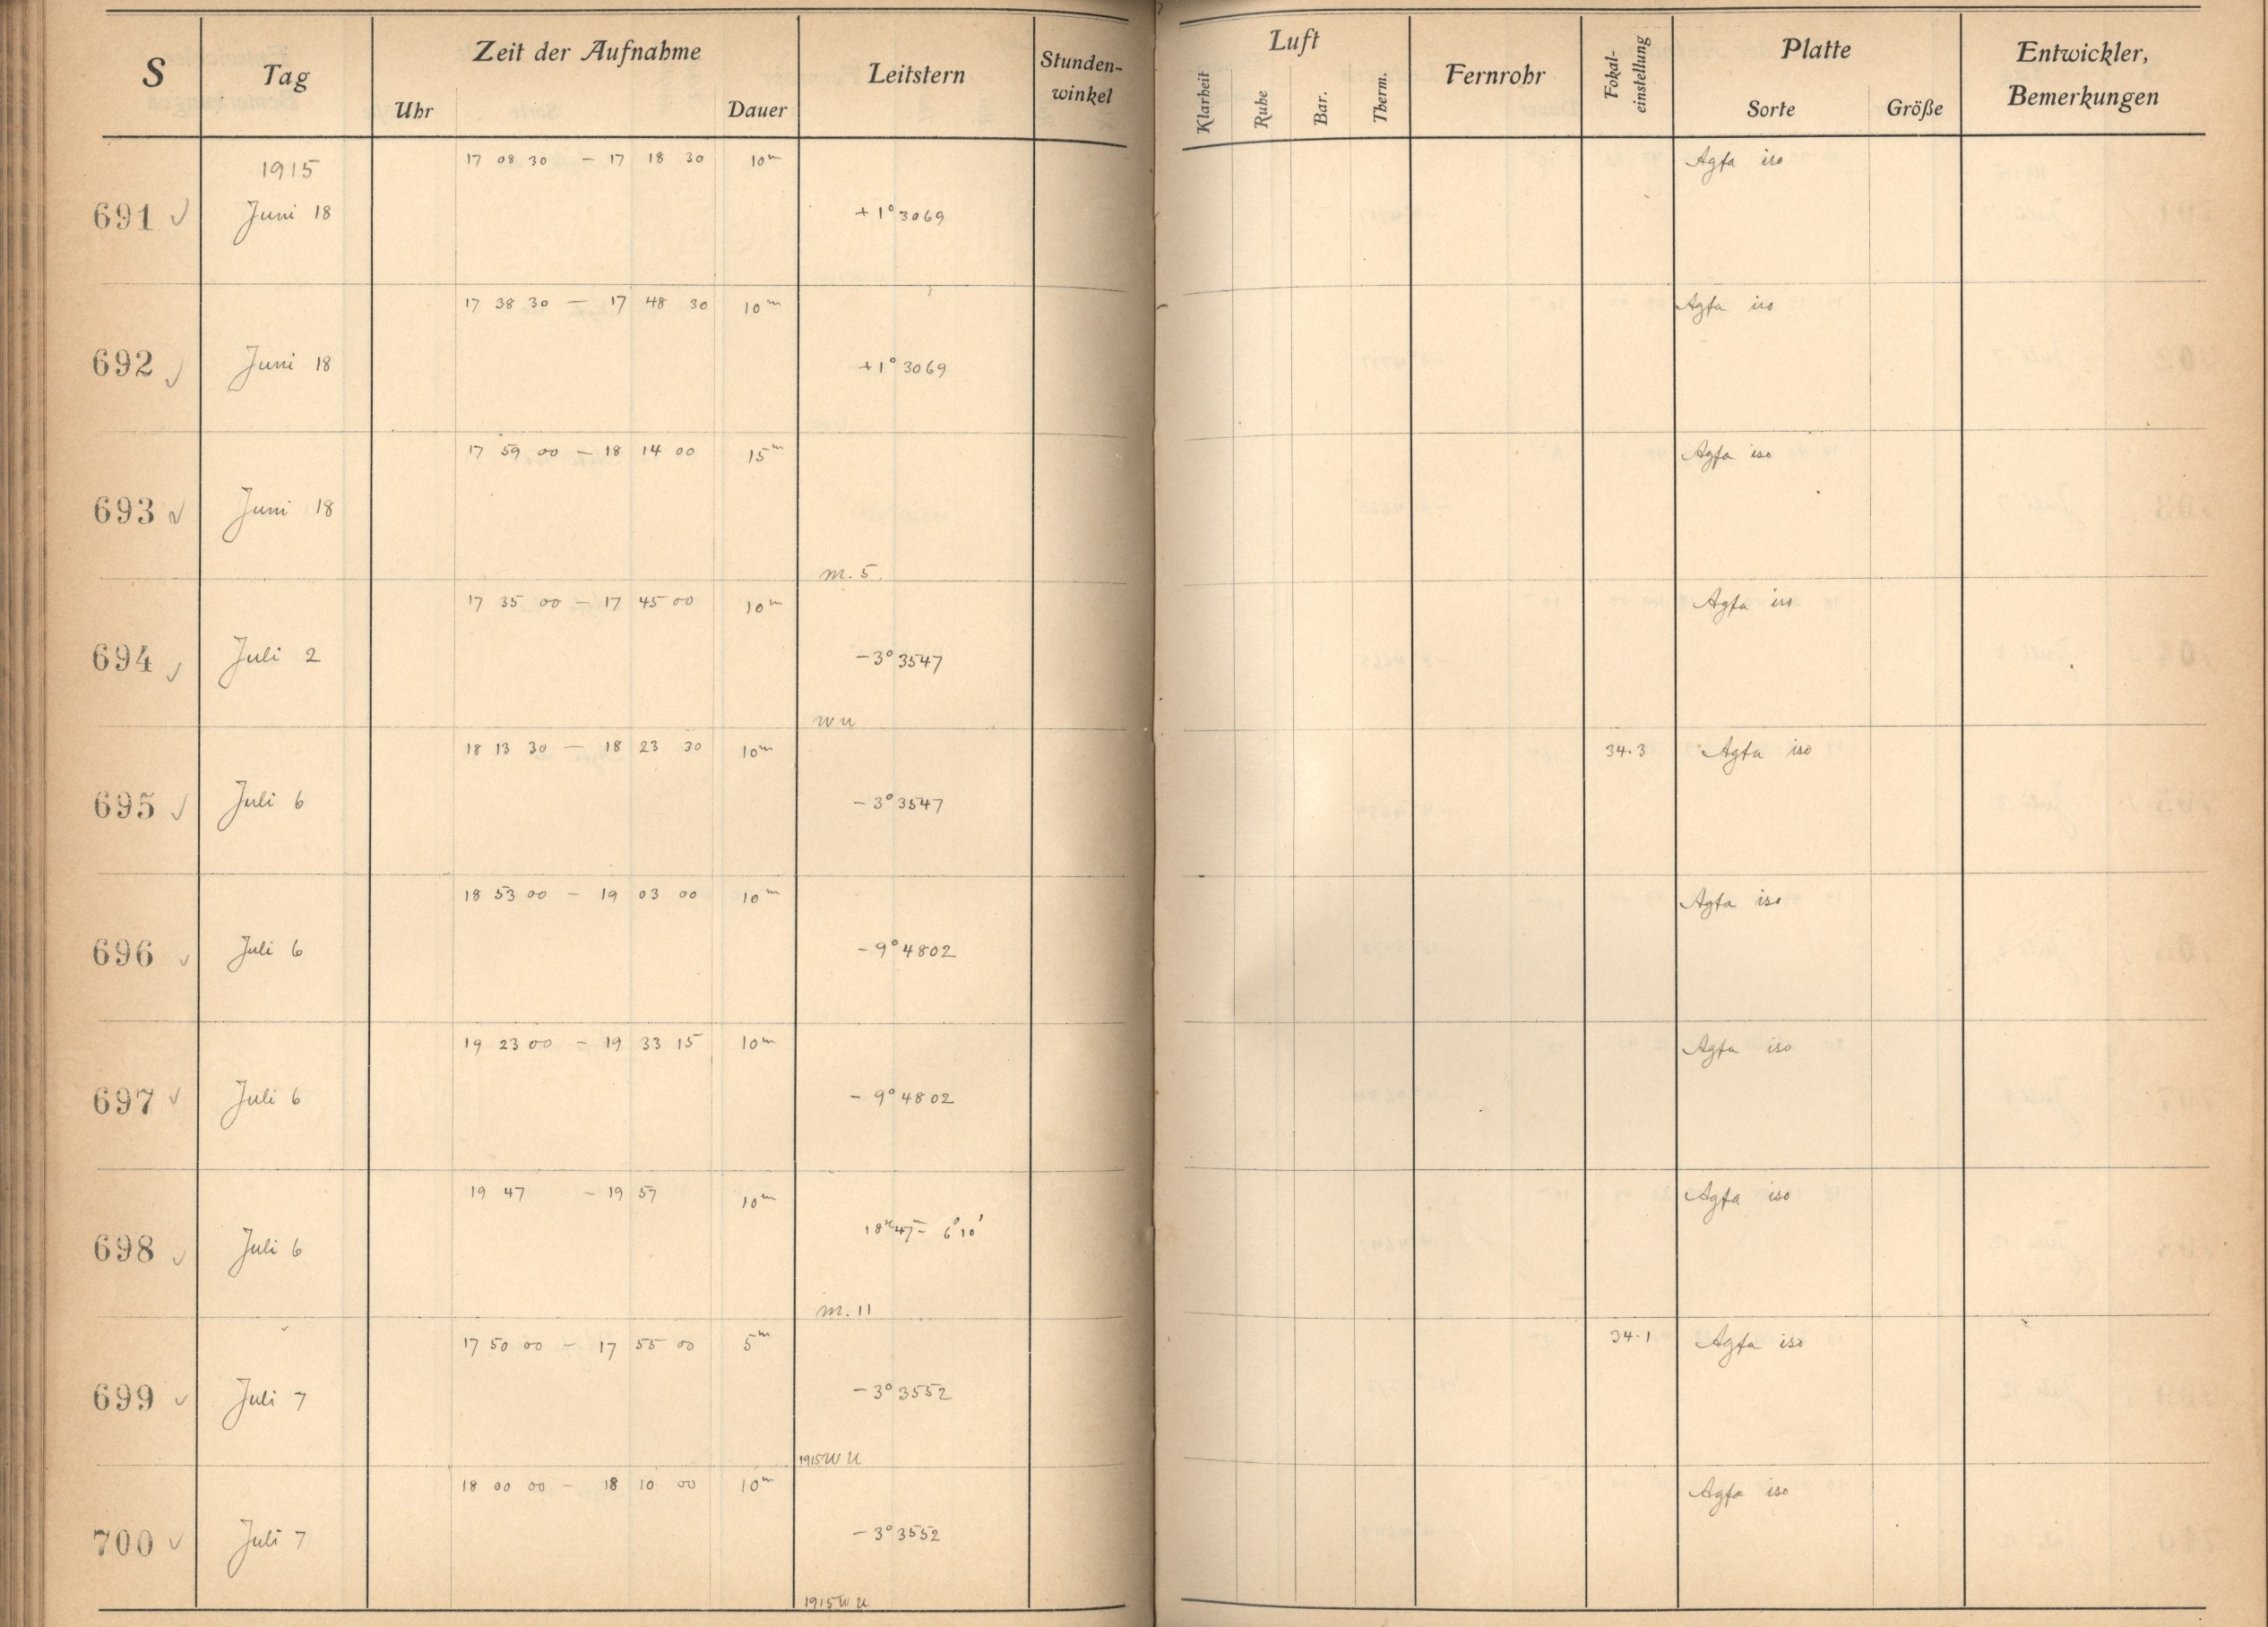 S Tag Zeit der Aufnahme Uhr Dauer Leitstern Stunden-winkel Luft Klarheit Ruhe Bar. Therm. Fernrohr Fokal-einstellung Platte Sorte Größe Entwickler, Bemerkungen
1915
17 08 30 – 17 18 30 10m Agfa iso
691 Juni 18 +1° 3069
17 38 30 – 17 48 30 10m Agfa iso
692 Juni 18 +1° 3069
17 59 00 – 18 14 00 15m Agfa iso
693 Juni 18
m. 5
17 35 00 – 17 45 00 10m Agfa iso
694 Juli 2 –3° 3547
WU
18 13 30 – 18 23 30 10m 34.3 Agfa iso
695 Juli 6 –3° 3547
18 53 00 – 19 03 00 10m Agfa iso
696 Juli 6 –9° 4802
19 23 00 – 19 33 15 10m Agfa iso
697 Juli 6 –9° 4802
19 47 – 19 57 10m Agfa iso
698 Juli 6 18h 47m – 6° 10'
m. 11
17 50 00 – 17 55 00 5m 34.1 Agfa iso
699 Juli 7 –3° 3552
1915 WU
18 00 00 – 18 10 00 10m Agfa iso
700 Juli 7 –3° 3552
1915 WU